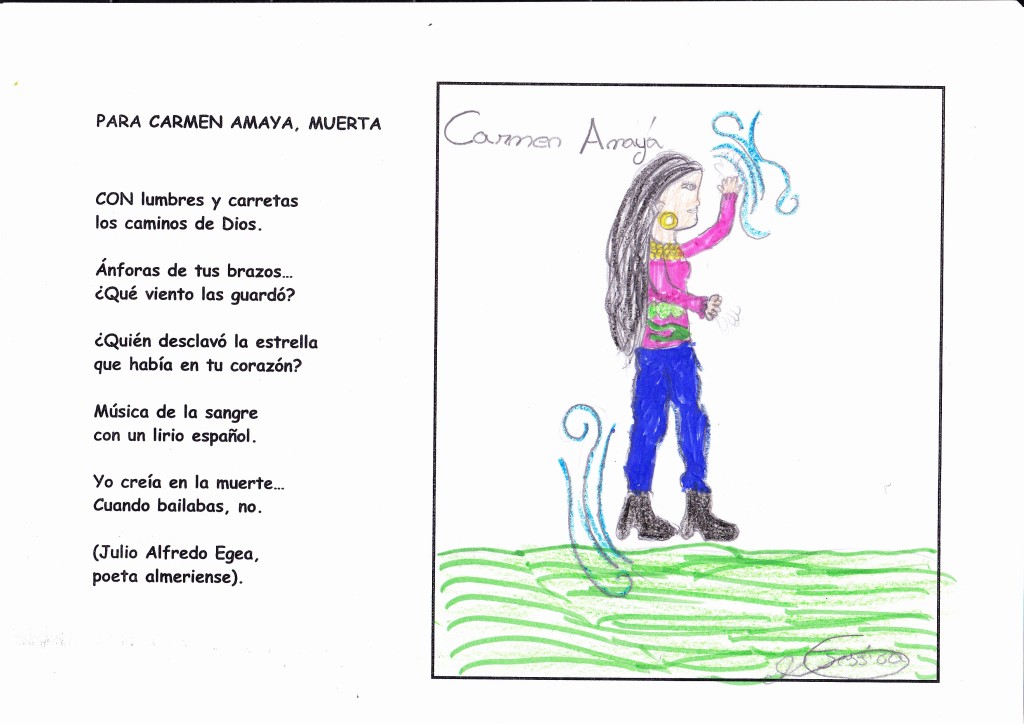 PARA CARMEN AMAYA, MUERTA
CON lumbres y carretas
los caminos de Dios.
Ánforas de tus brazos...
¿Qué viento las guardó?
¿Quién desclavó la estrella
que había en tu corazón?
Música de la sangre
con un lirio español.
Yo creía en la muerte...
Cuando bailabas, no.
(Julio Alfredo Egea,
poeta almeriense).
Carmen Amayá